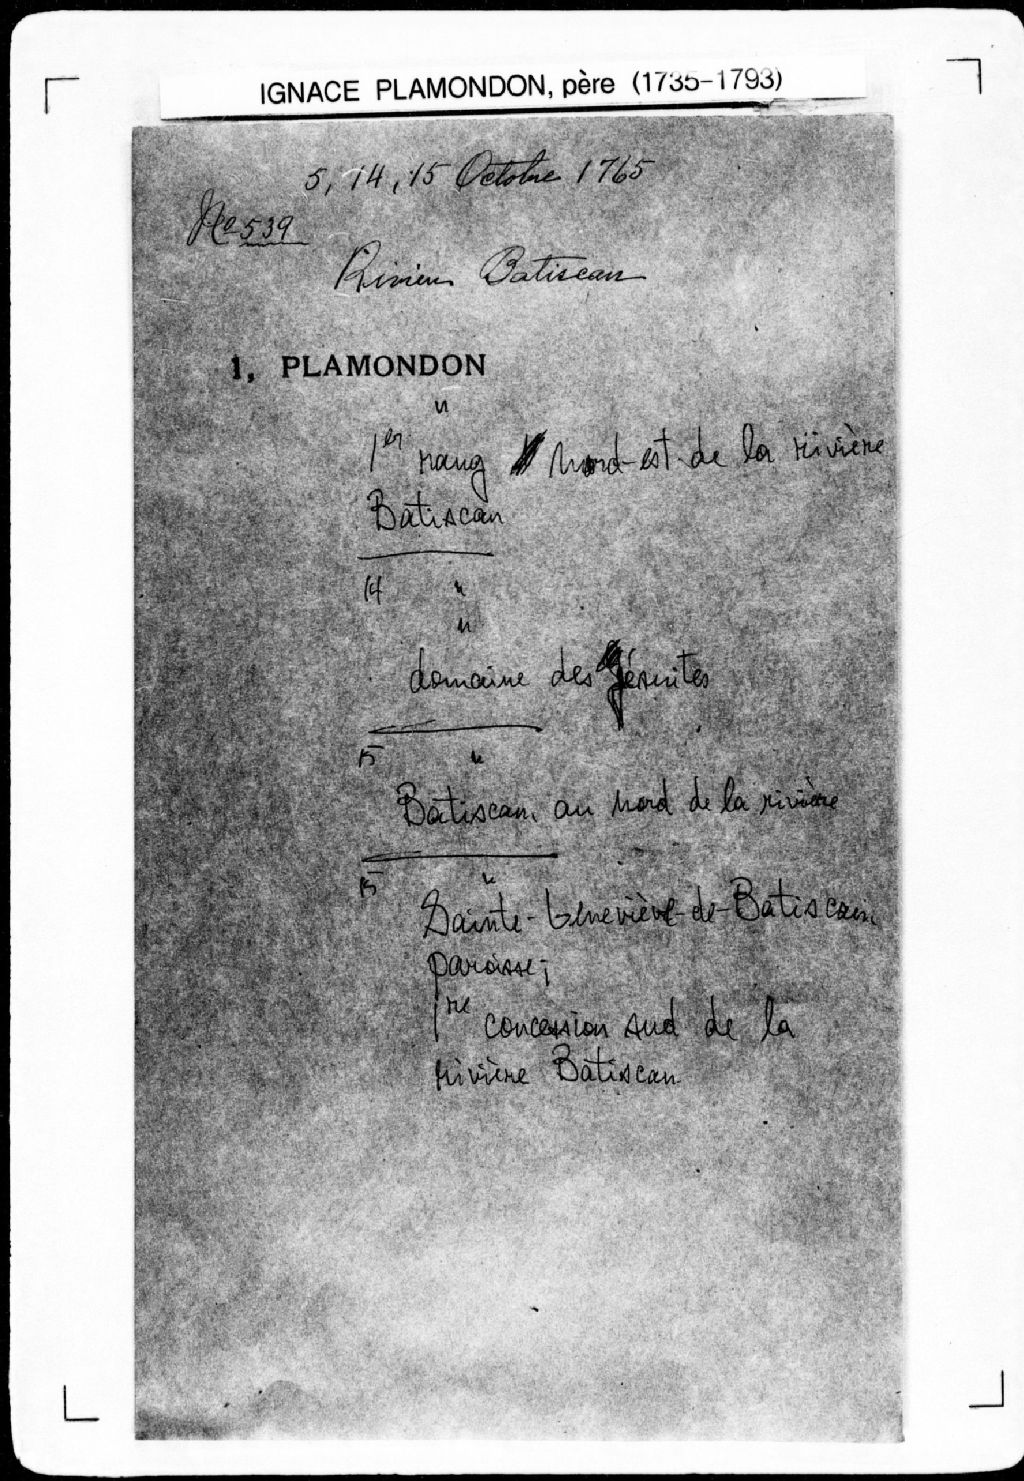 IGNACE PLAMONDON, père (1735-1793)
5, 14, 15 Octobre 1765
No 539
Rivière Batiscan
1, PLAMONDON
"
1er rang Nord-est de la rivière
Batiscan
14 "
"
domaine des Jésuites
15 "
Batiscan, au nord de la rivière
15 "
Sainte-Geneviève-de-Batiscan,
paroisse;
1re concession sud de la
rivière Batiscan